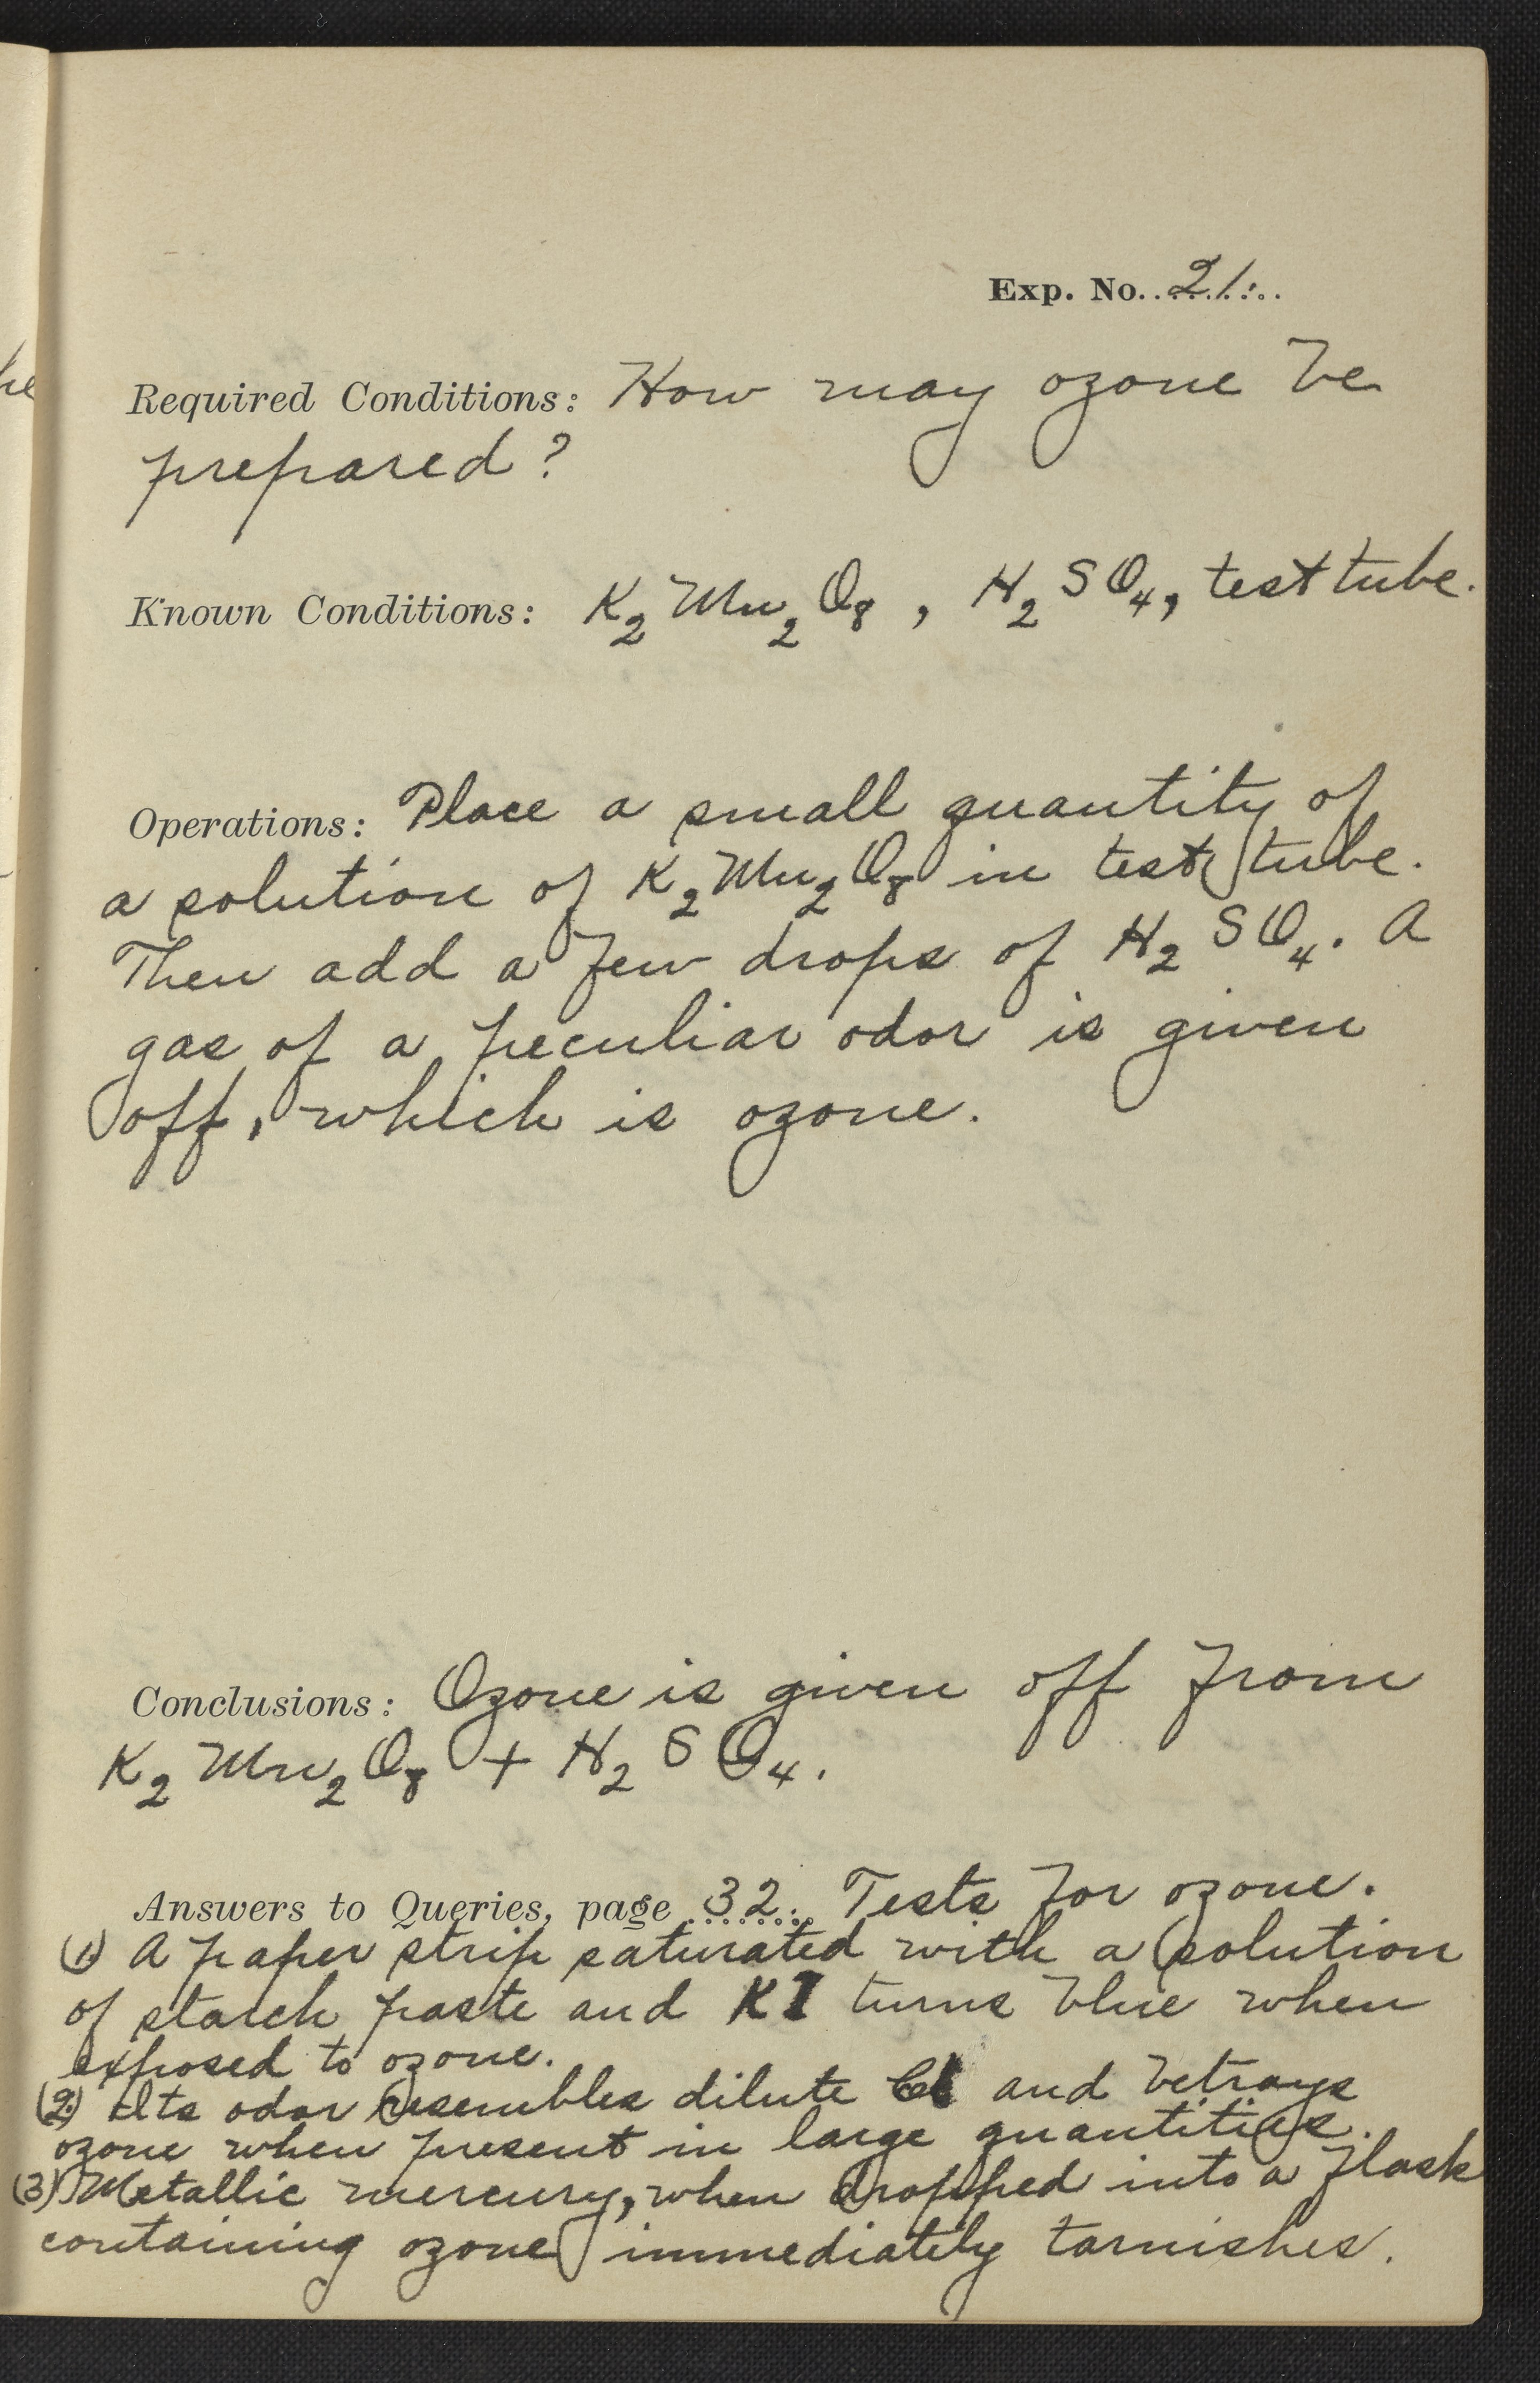 Exp. No. 21.
Required Conditions: How may ozone be
prepared?
Known Conditions: K2Mn2O8, H2SO4, test tube.
Operations: Place a small quantity of
a solution of K2Mn2O8 in test tube.
Then add a few drops of H2SO4. A
gas of a peculiar odor is given
off, which is ozone.
Conclusions: Ozone is given off from
K2Mn2O8 + H2SO4.
Answers to Queries, page 32. Tests for ozone.
(1) A paper strip saturated with a solution
of starch paste and KI turns blue when
exposed to ozone.
(2) Its odor resembles dilute Cl and betrays
ozone when present in large quantities.
(3) Metallic mercury, when dropped into a flask
containing ozone immediately tarnishes.